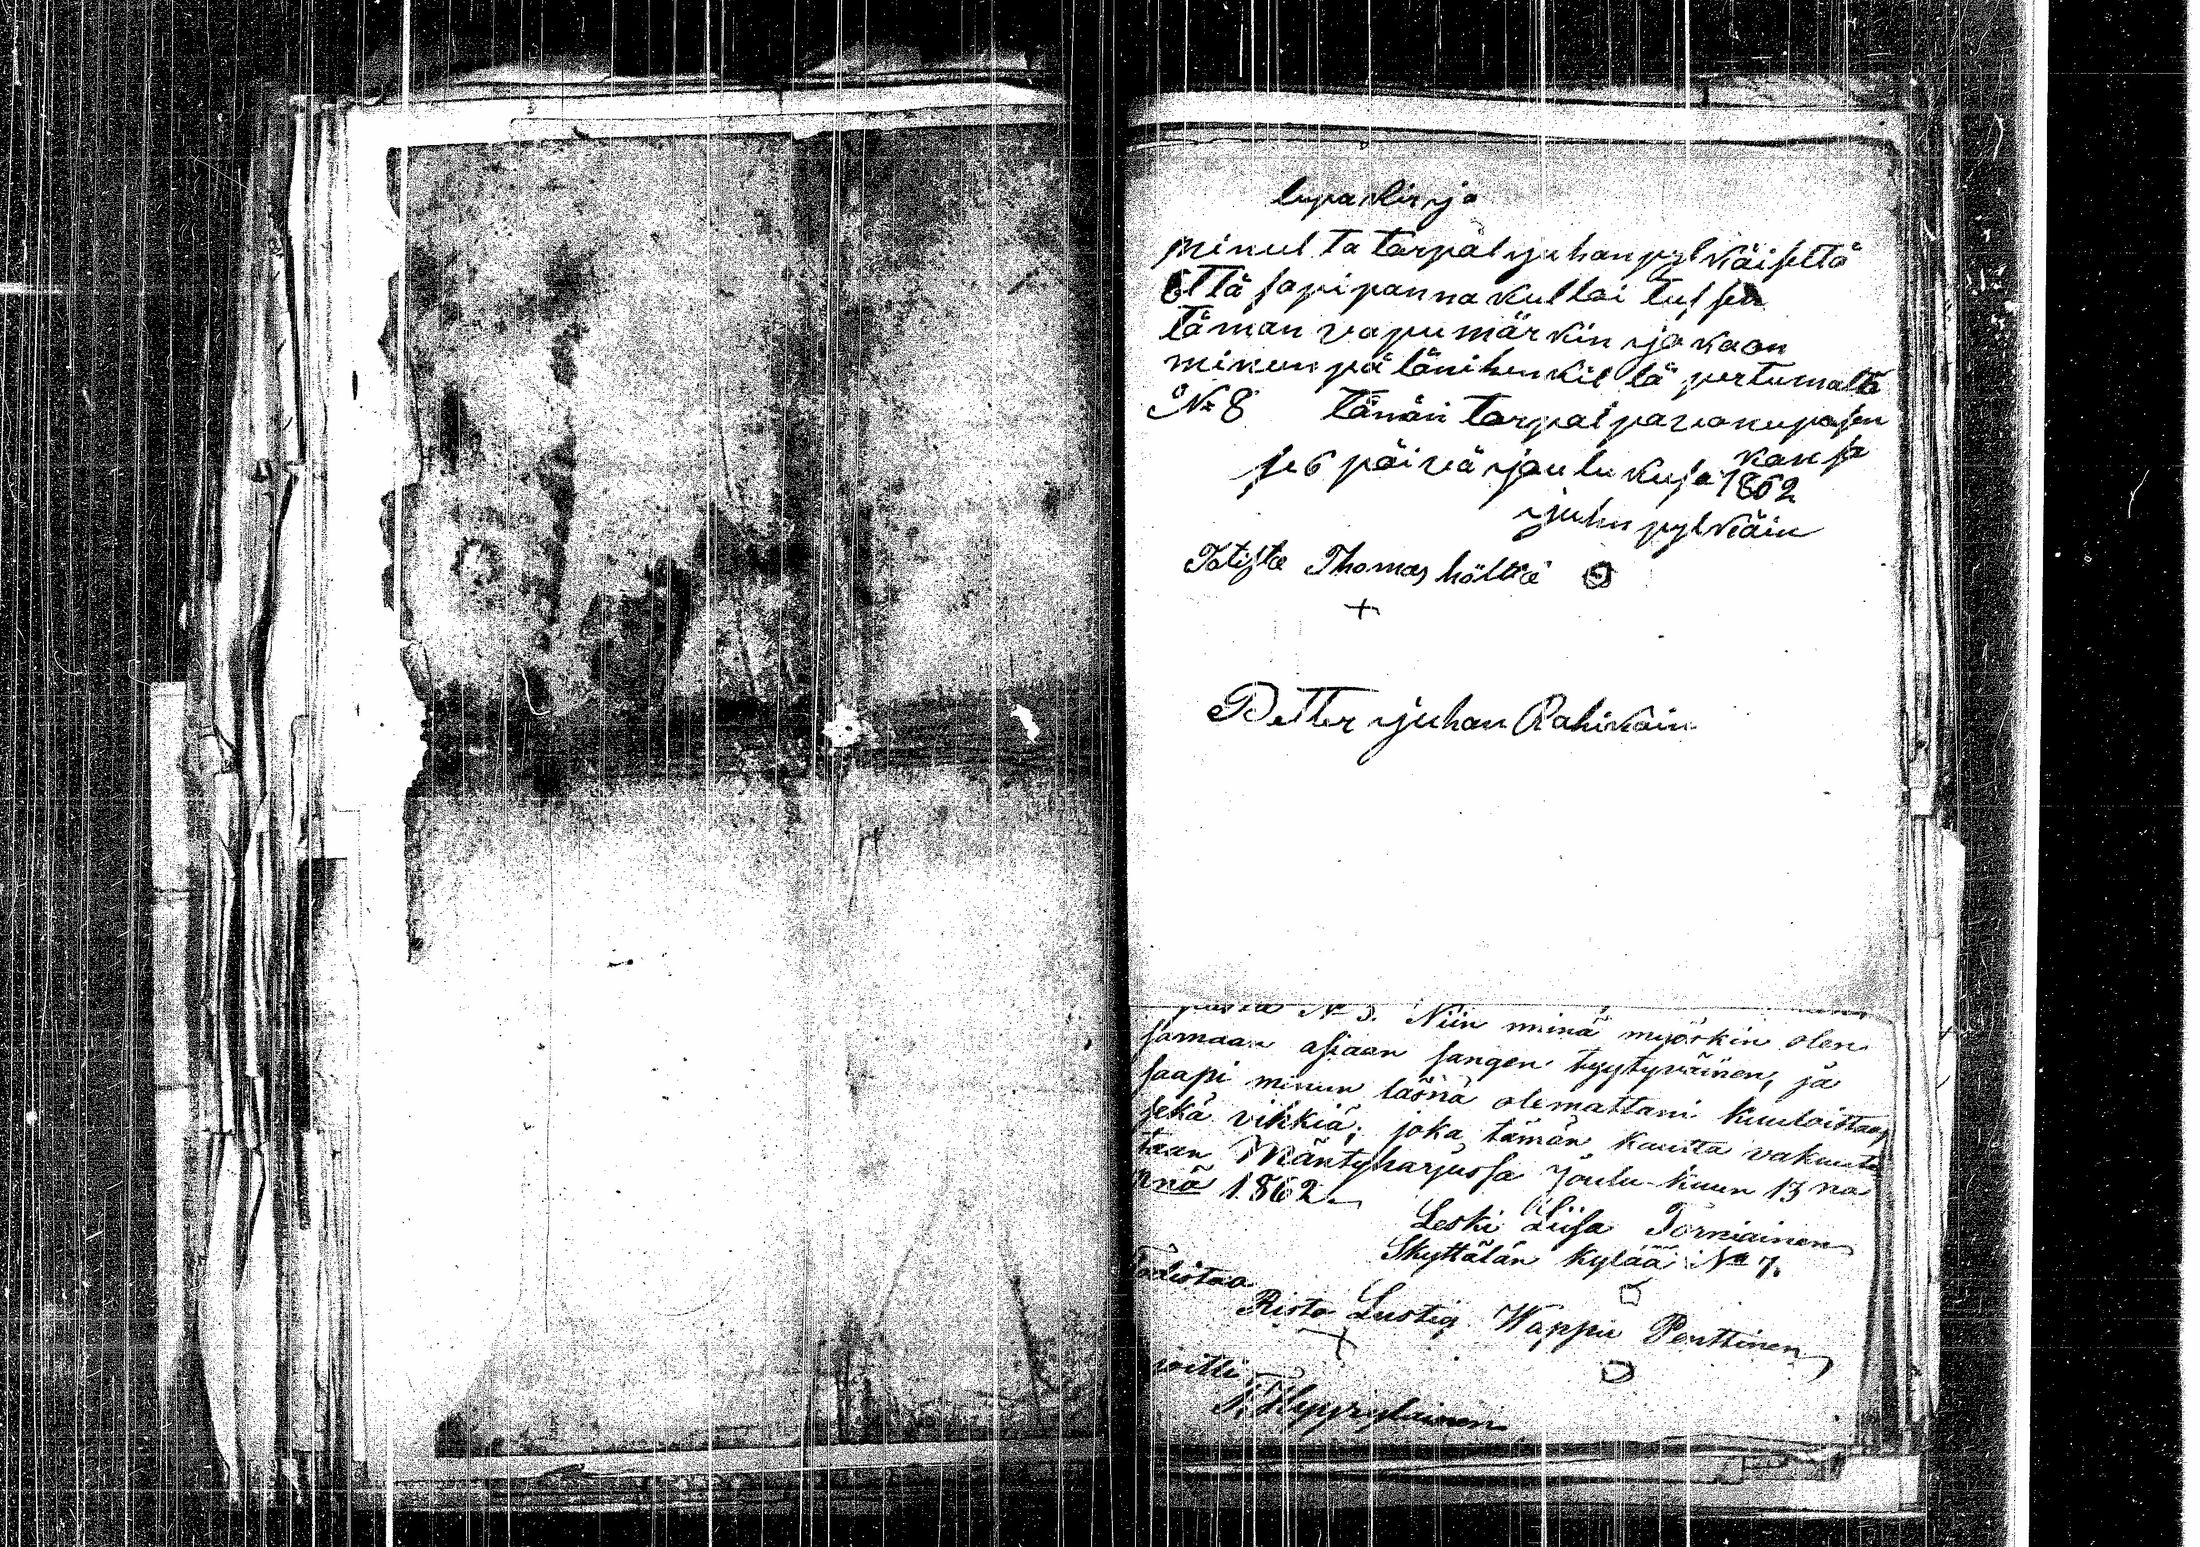 lupa kirja
minul ta torpal ijuhan pylkäiseltä
Että sapi panna kullai tul sen
täman vapu märkin ijo kaan
minun pä länihenkil tä pertumalta
No 8 tämän torpal parvonupojen
kansa
se 6 päivä ijoulu kusa 1862
ijuhn pylkäin
Totista Thomas hölttä
+
Better ijuhan Rahikain
No 3. Niin minä myöskin olen
samaan asiaan sangen tyytyväinen, ja
saapi minun läsnä olemattani kuuloistaa,
sekä vihkiä; joka tämän kautta vakuute
taan Mäntyharjussa Joulu-kuun 13 na
nnä 1862.
Leski Liisa Torniainen
Skyttälän kylää No 7.
Todistaa
Risto Lustig Wappu Penttinen
+
joitti
T. Hyyryläinen